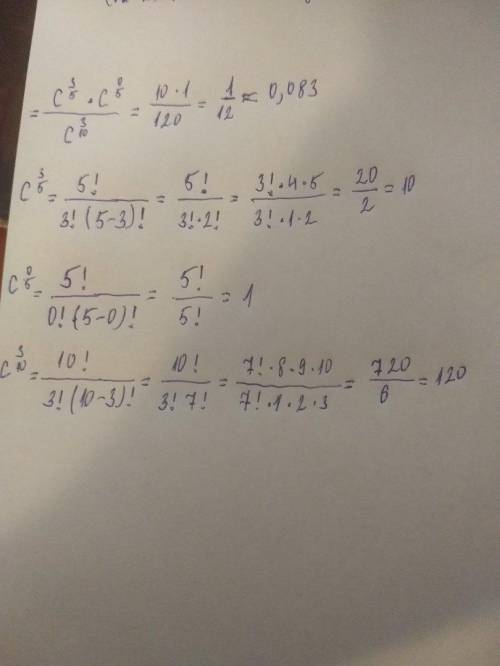 = C₅³ · C₅⁰ / C₁₀³ = 10 · 1 / 120 = 1 / 12 ≈ 0,083
C₅³ = 5! / 3! (5-3)! = 5! / 3! · 2! = 3! · 4 · 5 / 3! · 1 · 2 = 20 / 2 = 10
C₅⁰ = 5! / 0! (5-0)! = 5! / 5! = 1
C₁₀³ = 10! / 3! (10-3)! = 10! / 3! 7! = 7! · 8 · 9 · 10 / 7! · 1 · 2 · 3 = 720 / 6 = 120